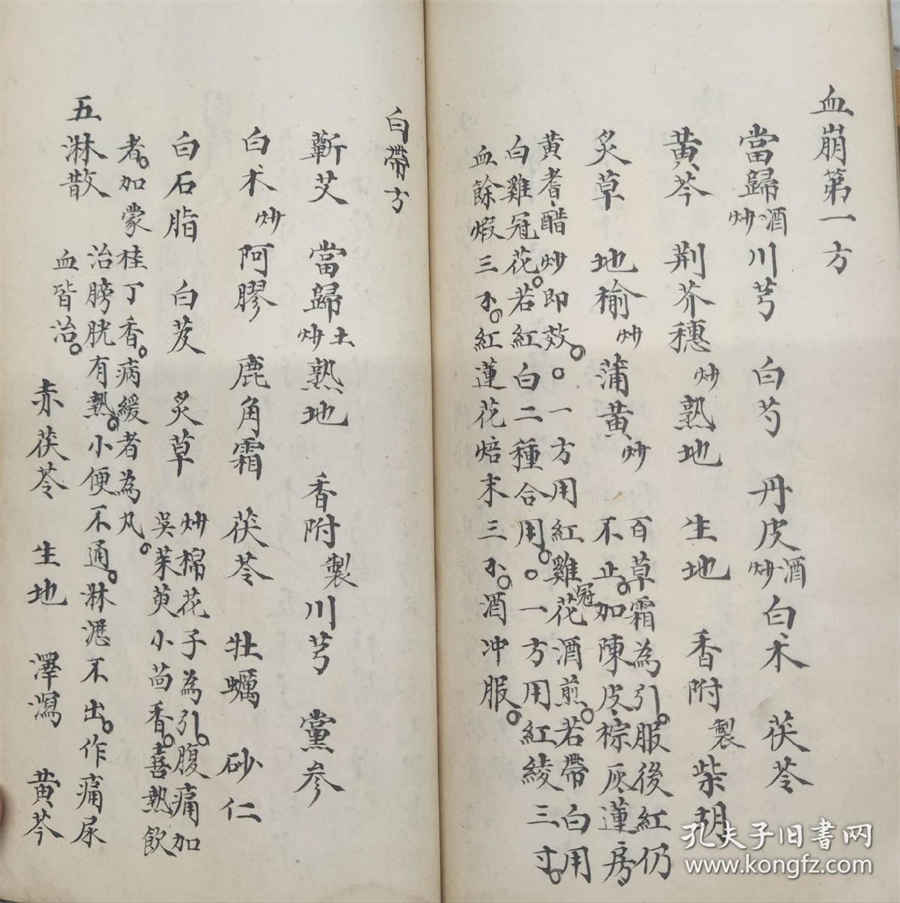 血崩第一方
當歸酒炒 川芎 白芍 丹皮酒炒 白术 茯苓
黄芩 荆芥穗炒 熟地 生地 香附製 柴胡
炙草 地榆炒 蒲黄炒 百草霜為引。服後紅仍
不止。加陳皮、棕灰、蓮房、
黄耆、醋炒即效。○一方用紅雞冠花酒煎。若帶白用
白雞冠花。若紅白二種合用。○一方用紅綾三寸。
血餘煅三小。紅蓮花焙末三小。酒冲服。
白帶方
蘄艾 當歸土炒 熟地 香附製 川芎 黨參
白术炒 阿膠 鹿角霜 茯苓 牡蠣 砂仁
白石脂 白芨 炙草 炒棉花子為引。腹痛加
吳茱萸小茴香。喜熱飲
者。加蒙桂丁香。病緩者為丸。
五淋散 治膀胱有熱。小便不通。淋瀝不出。作痛尿
血皆治。
赤茯苓 生地 澤瀉 黄芩
孔夫子旧书网
www.kongfz.com